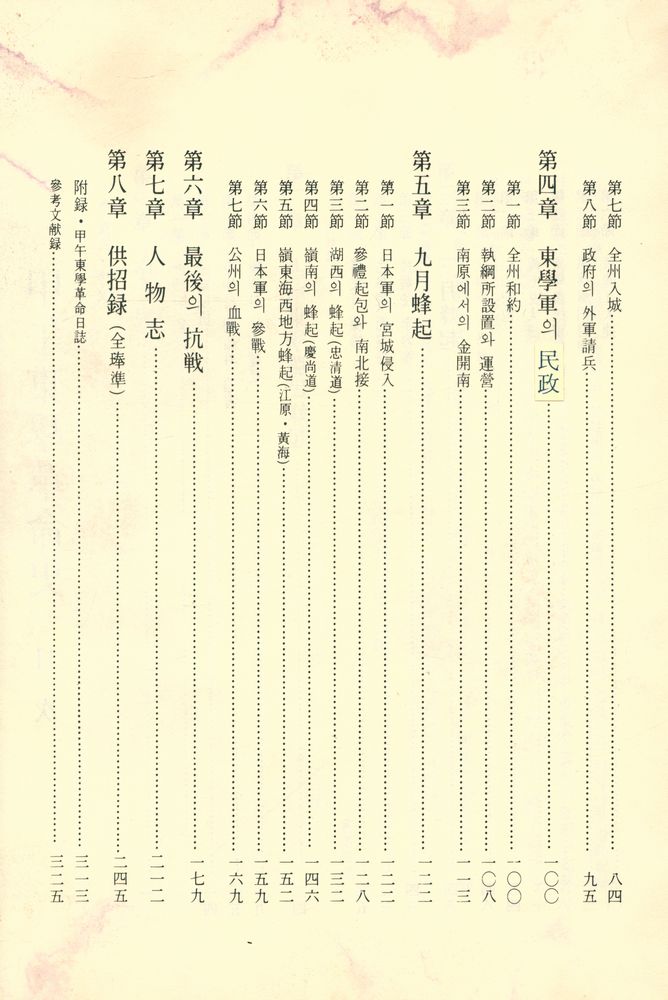 第七節 全州入城 八四
第八節 政府의 外軍請兵 九五
第四章 東學軍의 民政 一〇〇
第一節 全州和約 一〇〇
第二節 執綱所設置와 運營 一〇八
第三節 南原에서의 金開南 一一三
第五章 九月蜂起 一二二
第一節 日本軍의 宮城侵入 一二二
第二節 參禮起包와 南北接 一二八
第三節 湖西의 蜂起(忠清道) 一三二
第四節 嶺南의 蜂起(慶尚道) 一四六
第五節 嶺東海西地方蜂起(江原・黃海) 一五二
第六節 日本軍의 參戰 一五九
第七節 公州의 血戰 一六九
第六章 最後의 抗戦 一七九
第七章 人物志 二一二
第八章 供招録 (全琫準) 二四五
附録・甲午東學革命日誌 三一三
參考文献録 三二五